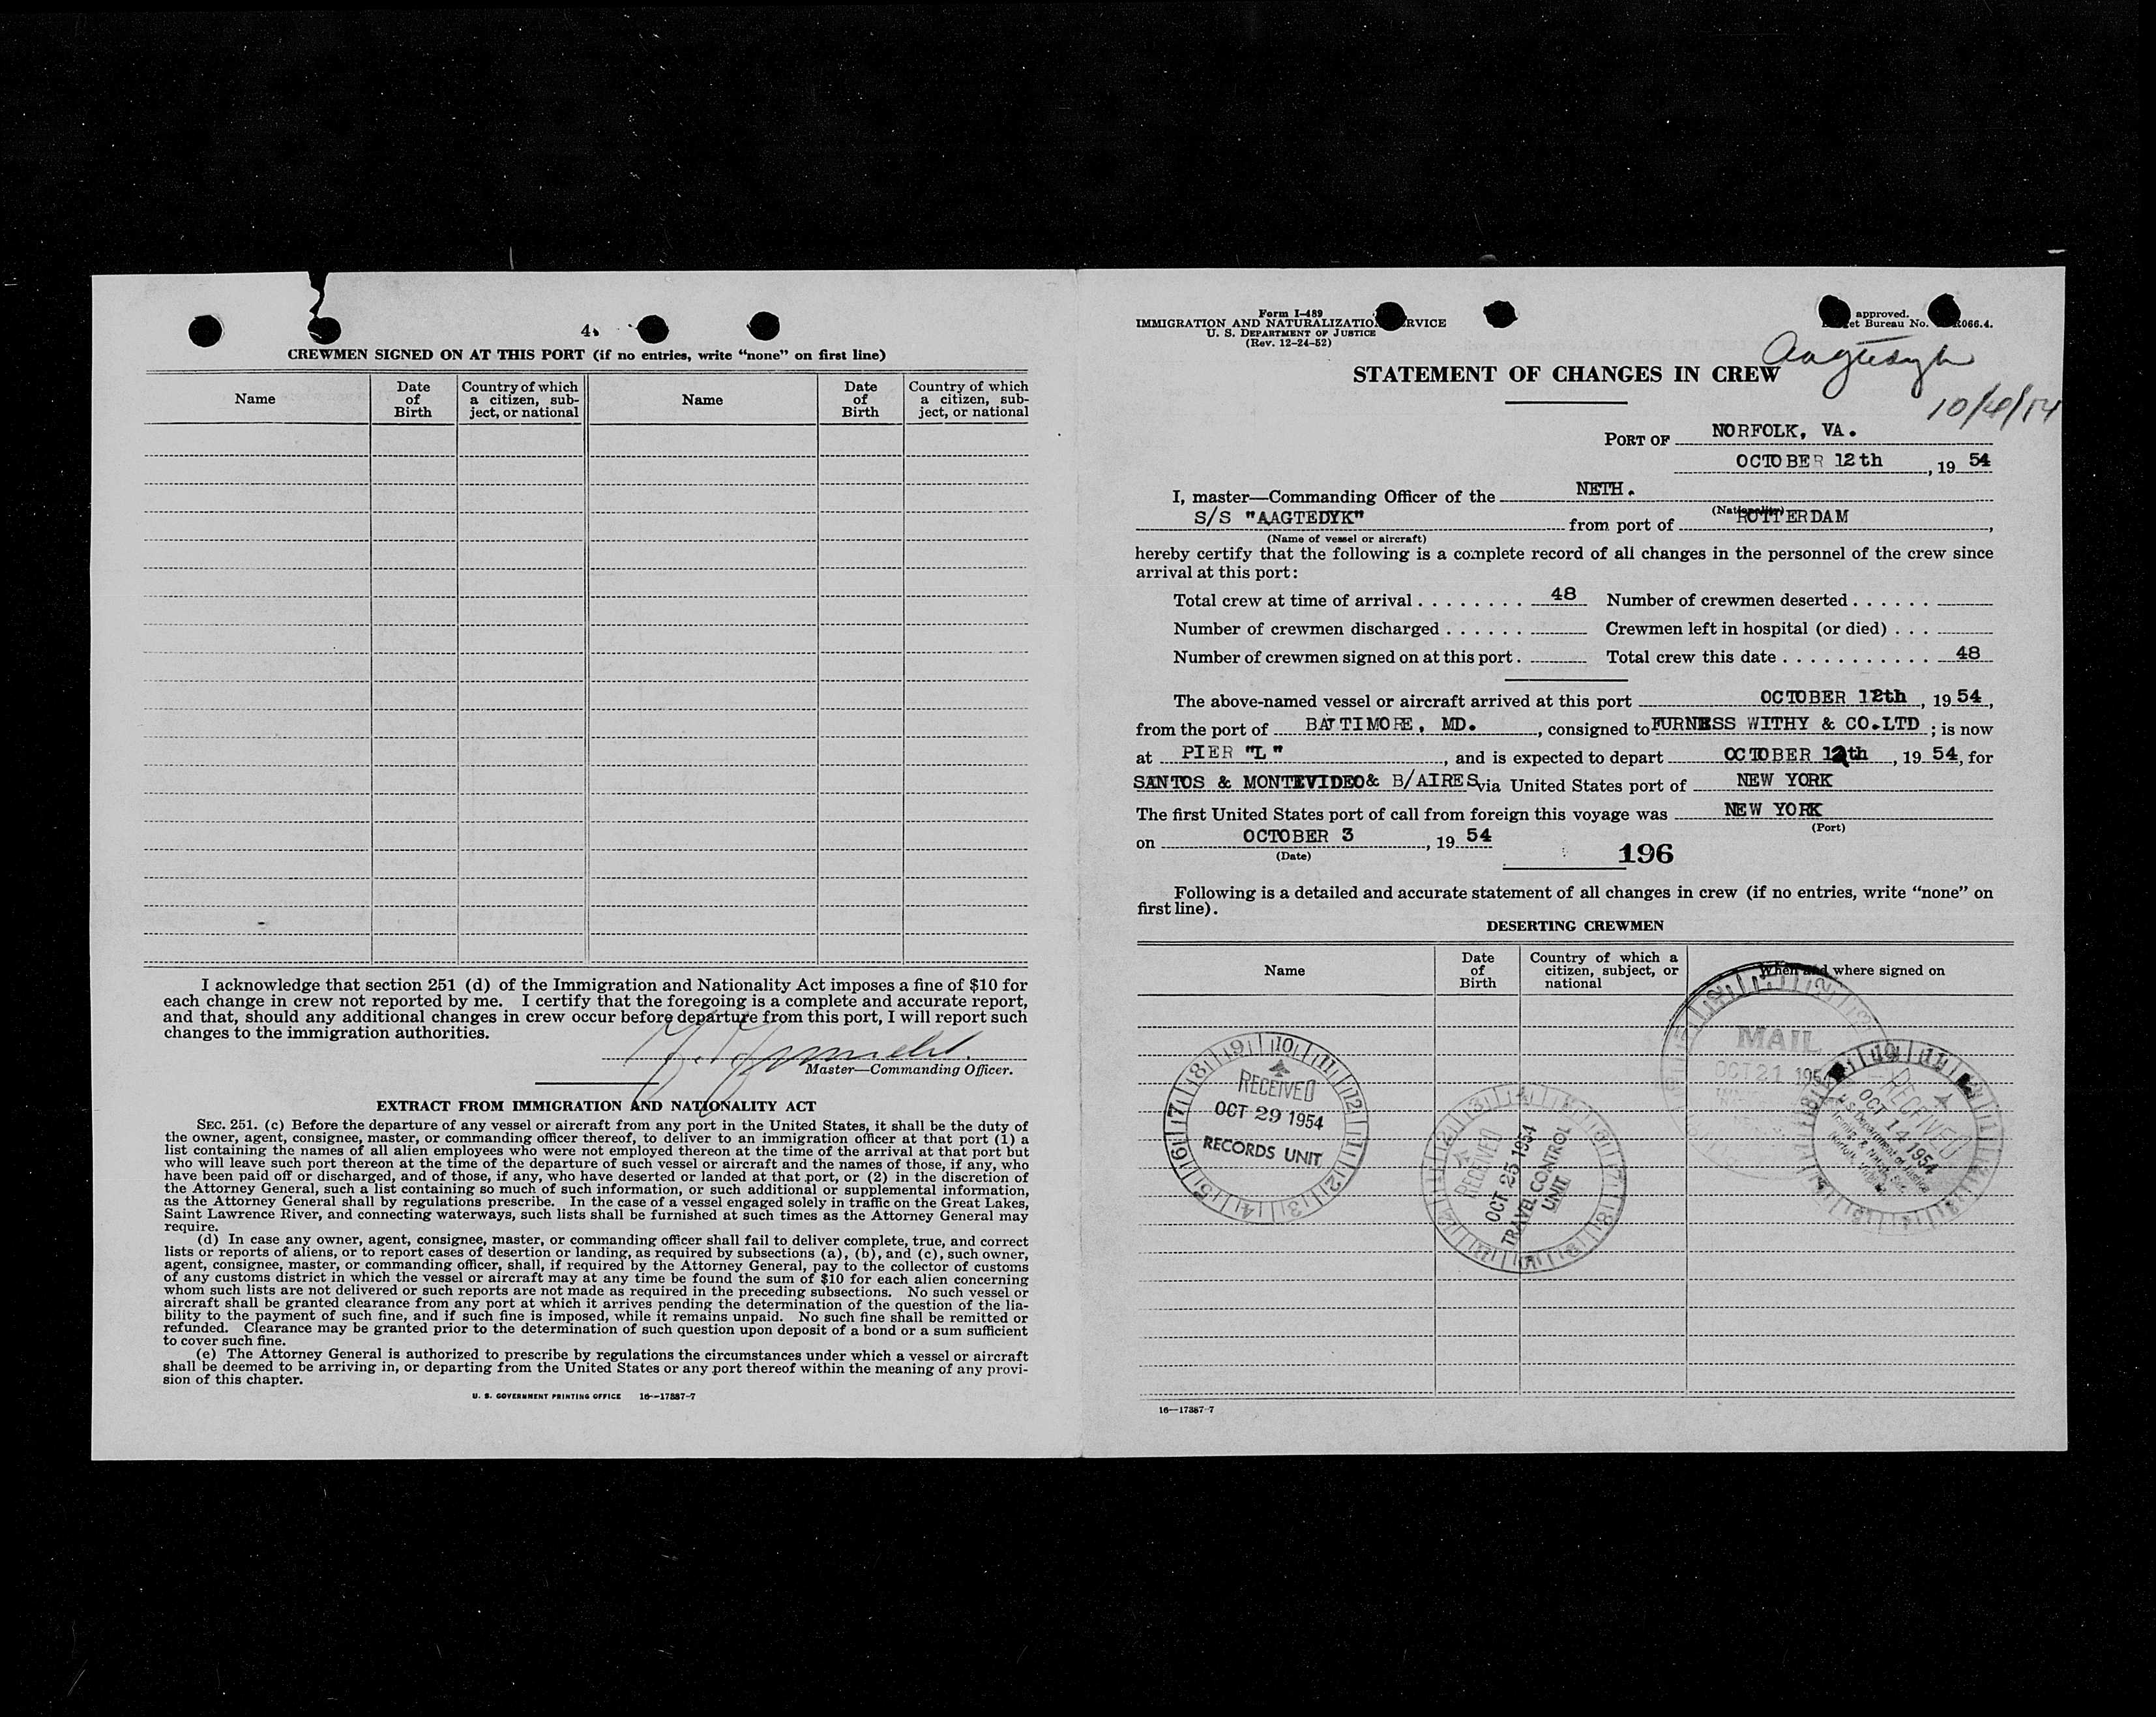 4.
CREWMEN SIGNED ON AT THIS PORT (if no entries, write “none” on first line)
Name
Date of Birth
Country of which a citizen, sub-ject, or national
Name
Date of Birth
Country of which a citizen, sub-ject, or national
I acknowledge that section 251 (d) of the Immigration and Nationality Act imposes a fine of $10 for
each change in crew not reported by me. I certify that the foregoing is a complete and accurate report,
and that, should any additional changes in crew occur before departure from this port, I will report such
changes to the immigration authorities.
Master—Commanding Officer.
EXTRACT FROM IMMIGRATION AND NATIONALITY ACT
SEC. 251. (c) Before the departure of any vessel or aircraft from any port in the United States, it shall be the duty of
the owner, agent, consignee, master, or commanding officer thereof, to deliver to an immigration officer at that port (1) a
list containing the names of all alien employees who were not employed thereon at the time of the arrival at that port but
who will leave such port thereon at the time of the departure of such vessel or aircraft and the names of those, if any, who
have been paid off or discharged, and of those, if any, who have deserted or landed at that port, or (2) in the discretion of
the Attorney General, such a list containing so much of such information, or such additional or supplemental information,
as the Attorney General shall by regulations prescribe. In the case of a vessel engaged solely in traffic on the Great Lakes,
Saint Lawrence River, and connecting waterways, such lists shall be furnished at such times as the Attorney General may
require.
(d) In case any owner, agent, consignee, master, or commanding officer shall fail to deliver complete, true, and correct
lists or reports of aliens, or to report cases of desertion or landing, as required by subsections (a), (b), and (c), such owner,
agent, consignee, master, or commanding officer, shall, if required by the Attorney General, pay to the collector of customs
of any customs district in which the vessel or aircraft may at any time be found the sum of $10 for each alien concerning
whom such lists are not delivered or such reports are not made as required in the preceding subsections. No such vessel or
aircraft shall be granted clearance from any port at which it arrives pending the determination of the question of the lia-
bility to the payment of such fine, and if such fine is imposed, while it remains unpaid. No such fine shall be remitted or
refunded. Clearance may be granted prior to the determination of such question upon deposit of a bond or a sum sufficient
to cover such fine.
(e) The Attorney General is authorized to prescribe by regulations the circumstances under which a vessel or aircraft
shall be deemed to be arriving in, or departing from the United States or any port thereof within the meaning of any provi-
sion of this chapter.
U. S. GOVERNMENT PRINTING OFFICE 16—17387-7
Form I-489
IMMIGRATION AND NATURALIZATIO RVICE
U. S. DEPARTMENT OF JUSTICE
(Rev. 12-24-52)
approved.
et Bureau No. 066.4.
Aagtedyk
STATEMENT OF CHANGES IN CREW
PORT OF NORFOLK, VA.
OCTOBER 12th, 19 54
I, master—Commanding Officer of the NETH.
(Nationality)
S/S "AAGTEDYK" from port of ROTTERDAM,
(Name of vessel or aircraft)
hereby certify that the following is a complete record of all changes in the personnel of the crew since
arrival at this port:
Total crew at time of arrival ........ 48 Number of crewmen deserted ......
Number of crewmen discharged ...... Crewmen left in hospital (or died) ...
Number of crewmen signed on at this port. Total crew this date ........... 48
The above-named vessel or aircraft arrived at this port OCTOBER 12th, 19 54,
from the port of BATTIMORE, MD., consigned to FURNESS WITHY & CO.LTD ; is now
at PIER "L", and is expected to depart OCTOBER 12th, 19 54, for
SANTOS & MONTEVIDEO& B/AIRES via United States port of NEW YORK
The first United States port of call from foreign this voyage was NEW YORK
(Port)
on OCTOBER 3, 19 54
(Date)
196
Following is a detailed and accurate statement of all changes in crew (if no entries, write “none” on
first line).
DESERTING CREWMEN
Name
Date of Birth
Country of which a citizen, subject, or national
When and where signed on
RECEIVED
OCT 29 1954
RECORDS UNIT
RECEIVED
OCT 25 1954
TRAVEL CONTROL
UNIT
MAIL
OCT 21 1954
RECEIVED
OCT 14 1954
U.S. Department of Justice
16—17387-7